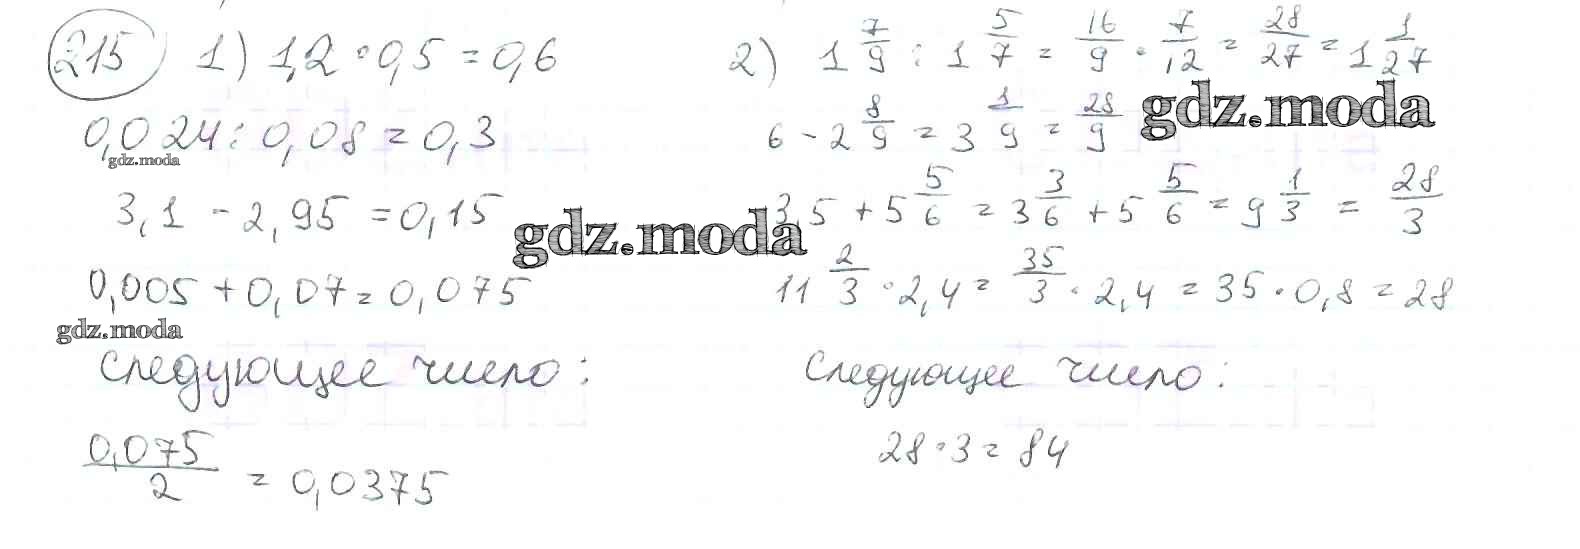 215 1) 1,2 · 0,5 = 0,6
0,024 : 0,08 = 0,3
gdz.moda
3,1 - 2,95 = 0,15
gdz.moda
0,005 + 0,07 = 0,075
gdz.moda
Следующее число:
0,075/2 = 0,0375
2) 1 7/9 : 1 5/7 = 16/9 · 7/12 = 28/27 = 1 1/27
6 - 2 8/9 = 3 1/9 = 28/9
gdz.moda
3,5 + 5 5/6 = 3 3/6 + 5 5/6 = 9 1/3 = 28/3
11 2/3 · 2,4 = 35/3 · 2,4 = 35 · 0,8 = 28
Следующее число:
28 · 3 = 84